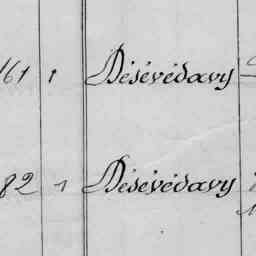 161 1 Désévédavy
82 1 Désévédavy